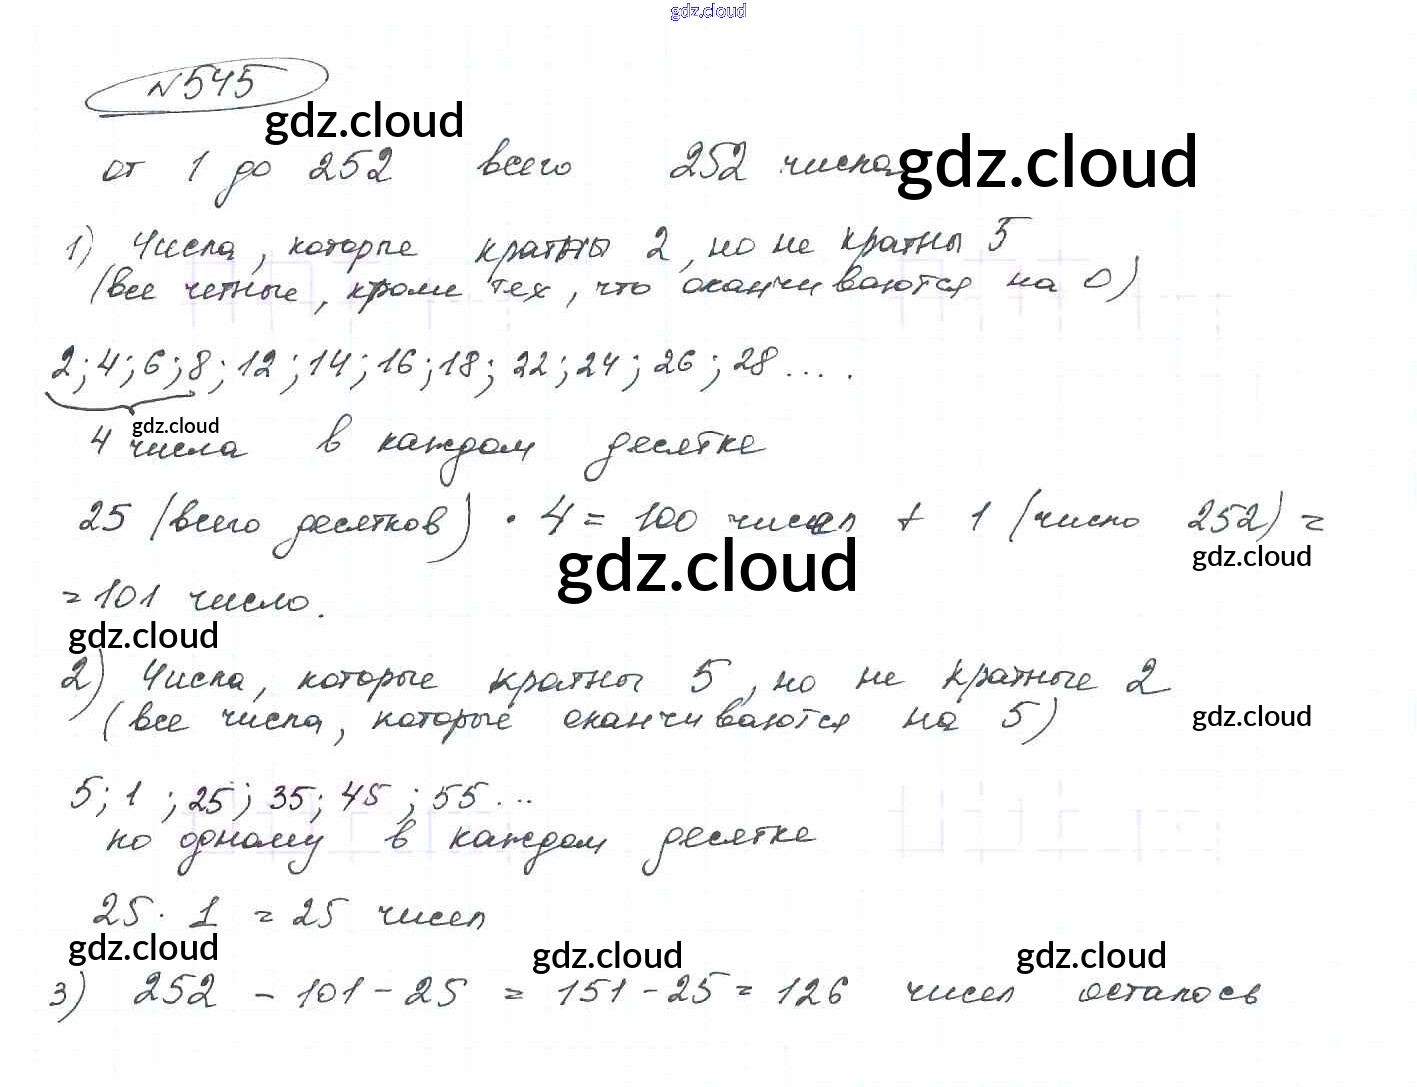 gdz.cloud
№545
gdz.cloud
от 1 до 252 всего 252 числа
gdz.cloud
1) Числа, которые кратны 2, но не кратны 5
(все четные, кроме тех, что оканчиваются на 0)
2; 4; 6; 8; 12; 14; 16; 18; 22; 24; 26; 28 ... .
gdz.cloud
4 числа в каждом десятке
25 (всего десятков) · 4 = 100 чисел + 1 (число 252) =
gdz.cloud
gdz.cloud
= 101 число.
gdz.cloud
2) Числа, которые кратны 5, но не кратные 2
(все числа, которые оканчиваются на 5)
gdz.cloud
5; 1 ; 25; 35; 45 ; 55 ...
по одному в каждом десятке
25 · 1 = 25 чисел
gdz.cloud
gdz.cloud
gdz.cloud
3) 252 - 101 - 25 = 151 - 25 = 126 чисел осталось